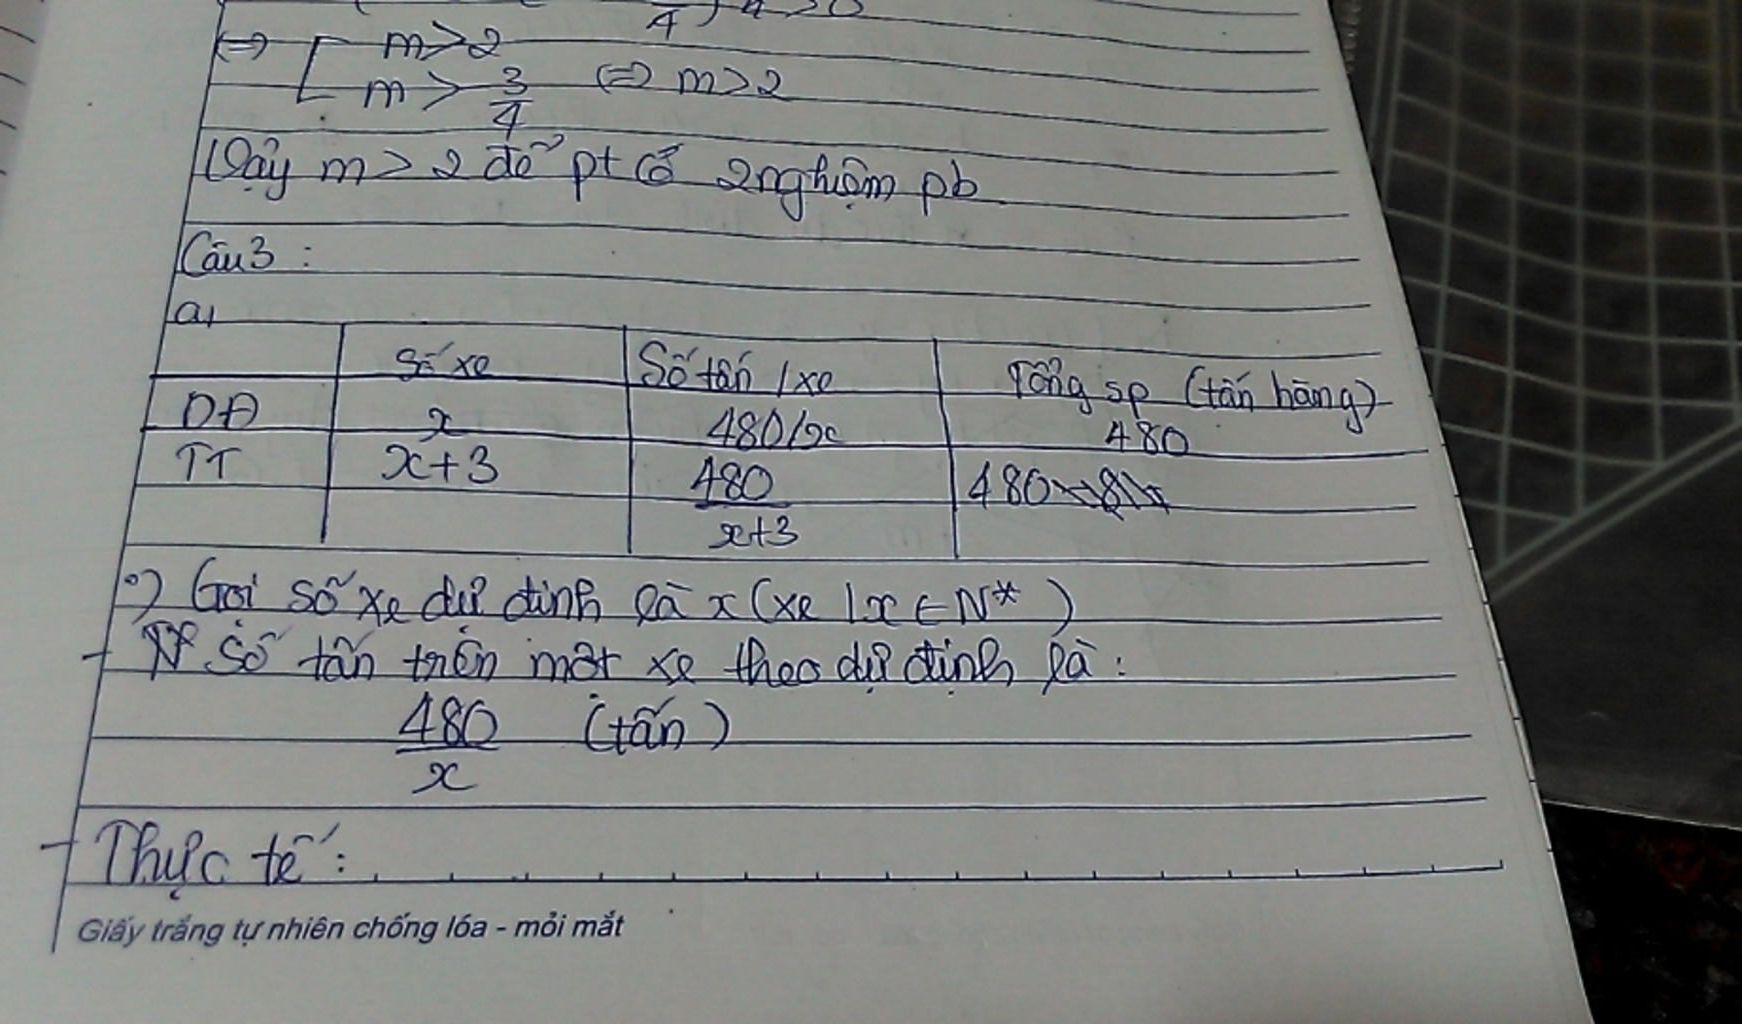 ⇔ [ m > 2
m > 3/4 ⇔ m > 2
Vậy m > 2 để pt có 2 nghiệm pb
Câu 3 :
a,
Số xe Số tấn / xe Tổng sp (tấn hàng)
DĐ x 480/x 480
TT x+3 480/x+3 480
°) Gọi số xe dự định là x (xe / x ∈ N*)
+ Số tấn trên một xe theo dự định là :
480/x (tấn)
+ Thực tế :
Giấy trắng tự nhiên chống lóa - mỏi mắt